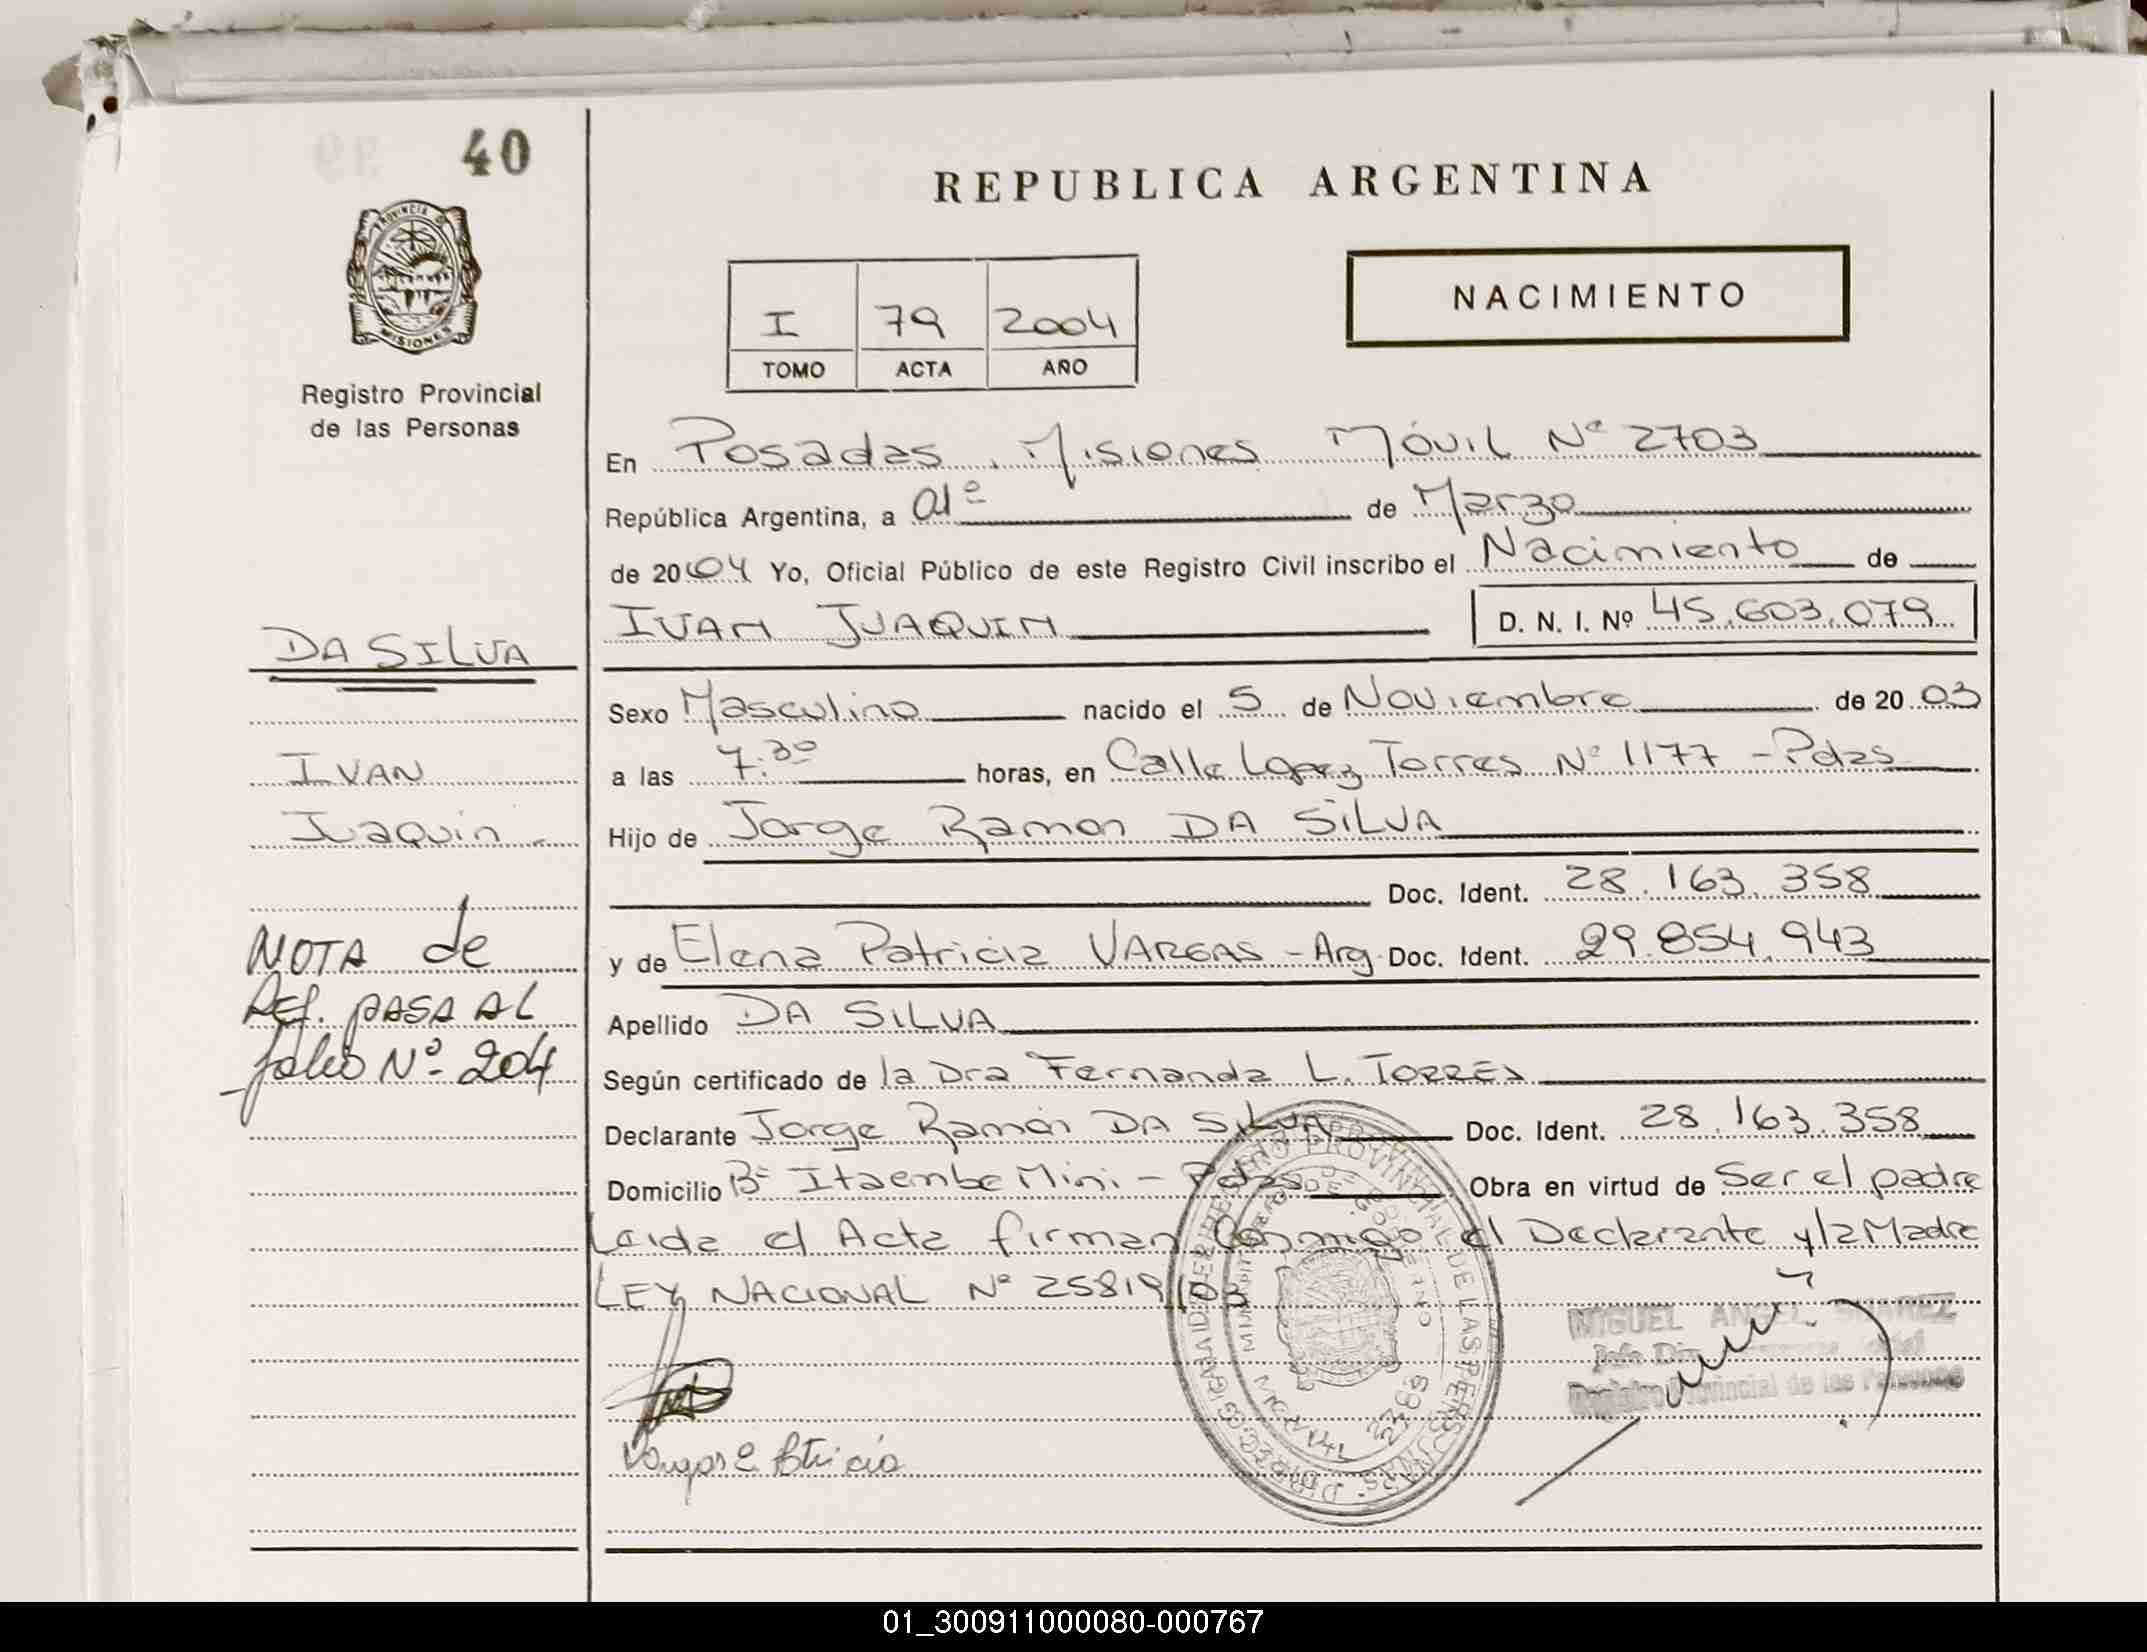 40
REPUBLICA ARGENTINA
PROVINCIA DE
MISIONES
Registro Provincial
de las Personas
I 79 2004
TOMO ACTA AÑO
NACIMIENTO
En Posadas, Misiones Móvil Nº 2703
República Argentina, a 01º de Marzo
de 2004 Yo, Oficial Público de este Registro Civil inscribo el Nacimiento de
IVAN JUAQUIN D. N. I. Nº 45.603.079
DA SILVA
Sexo Masculino nacido el 5 de Noviembre de 2003
a las 7:30 horas, en Calle Lopez Torres Nº 1177 - Pdas
IVAN
Juaquin -
Hijo de Jorge Ramon DA SILVA
Doc. Ident. 28.163.358
y de Elena Patricia VARGAS - Arg. Doc. Ident. 29.854.943
NOTA de
REF. PASA AL
folio Nº 204
Apellido DA SILVA
Según certificado de la Dra Fernanda L. TORRES
Declarante Jorge Ramón DA SILVA Doc. Ident. 28.163.358
Domicilio Bº Itaembe Mini - Pdas Obra en virtud de Ser el padre
Leida el Acta firman Conmigo el Declarante y la Madre
LEY NACIONAL Nº 25819/03
MIGUEL ANGEL SUAREZ
Registro Provincial de las Personas
Vargas E Patricia
01_300911000080-000767